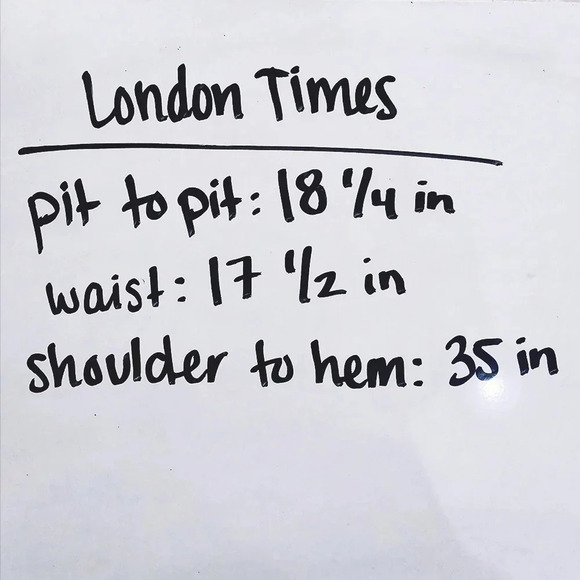 London Times
pit to pit: 18 1/4 in
waist: 17 1/2 in
shoulder to hem: 35 in